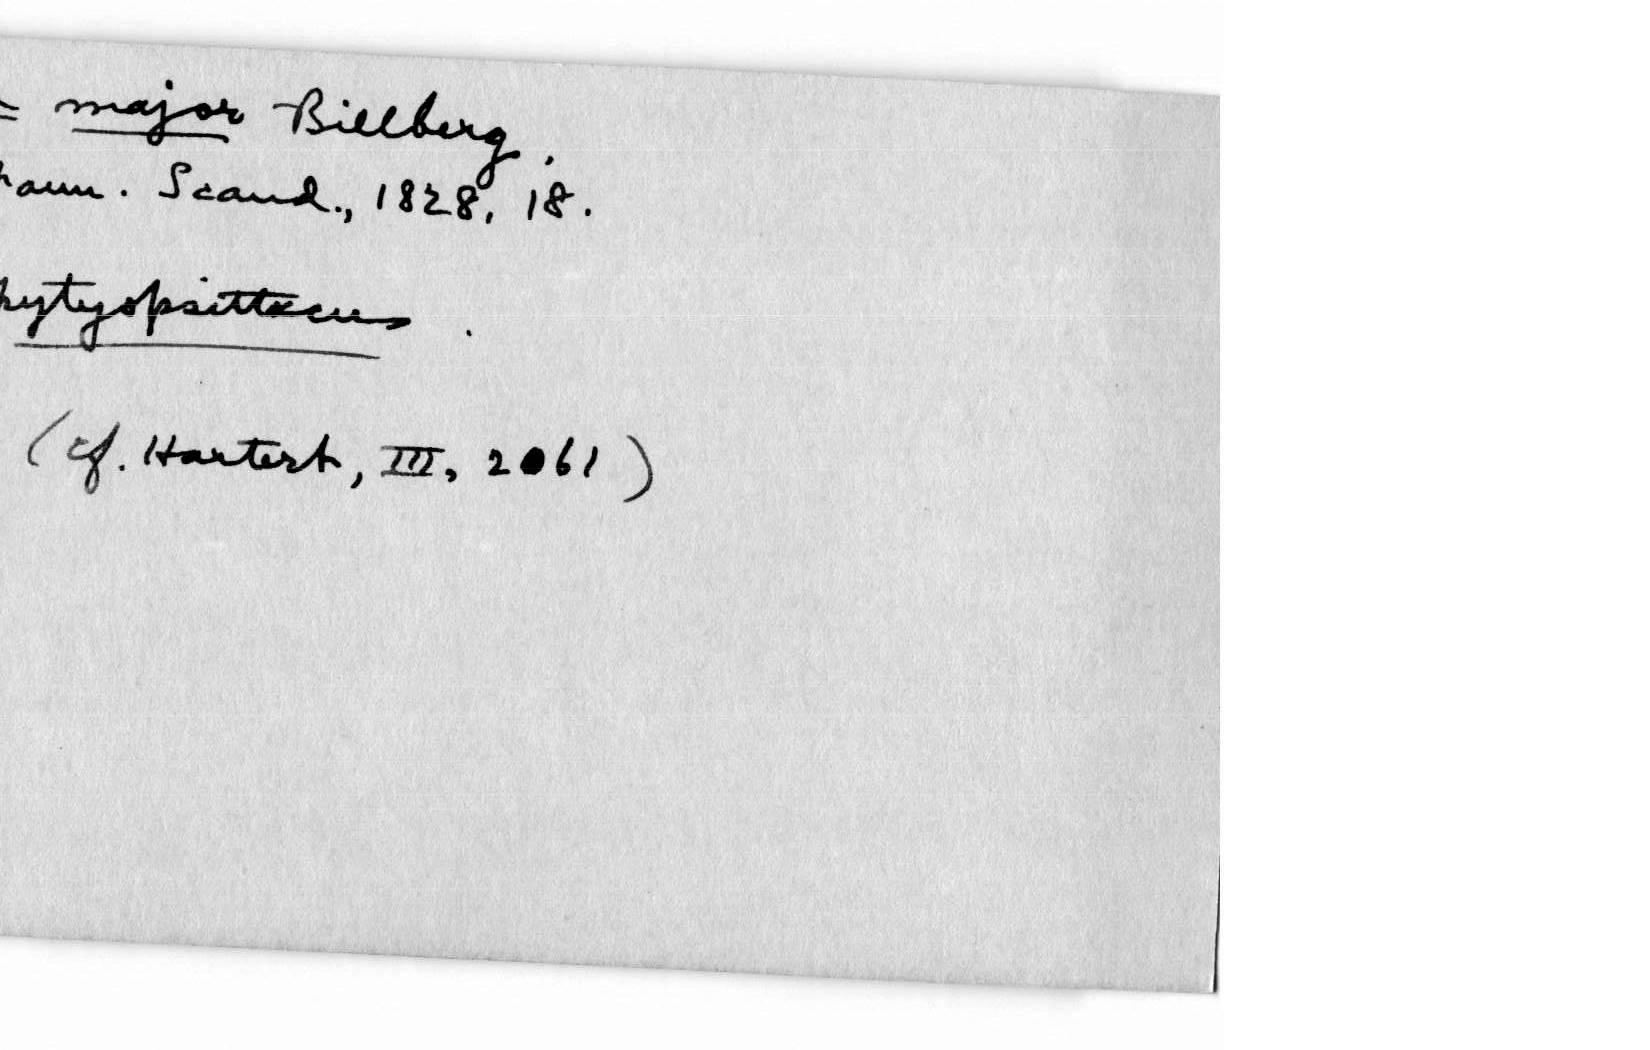 = major Billberg.
Faun. Scand., 1828, 18.
pytyopsittacus.
(cf. Hartert, III, 2061)